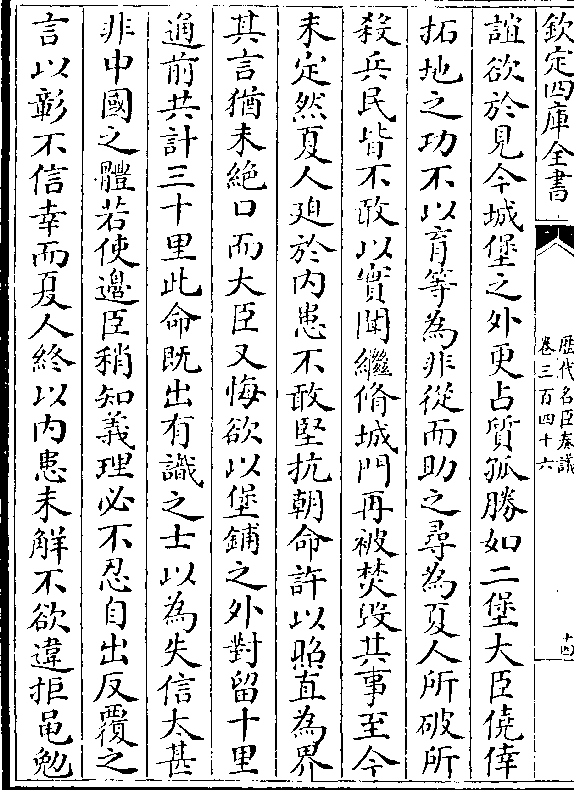 欽定四庫全書
歴代名臣奏議
卷三百四十六
十四
誼欲於見今城堡之外更占質孤勝如二堡大臣僥倖
拓地之功不以育等為非從而助之尋為夏人所破所
殺兵民皆不敢以實聞繼脩城門再被焚毁其事至今
未定然夏人廹於内患不敢堅抗朝命許以照直為界
其言猶未絶口而大臣又悔欲以堡鋪之外對留十里
通前共計三十里此命既出有識之士以為失信太甚
非中國之體若使邉臣稍知義理必不忍自出反覆之
言以彰不信幸而夏人終以内患未解不欲違拒黽勉